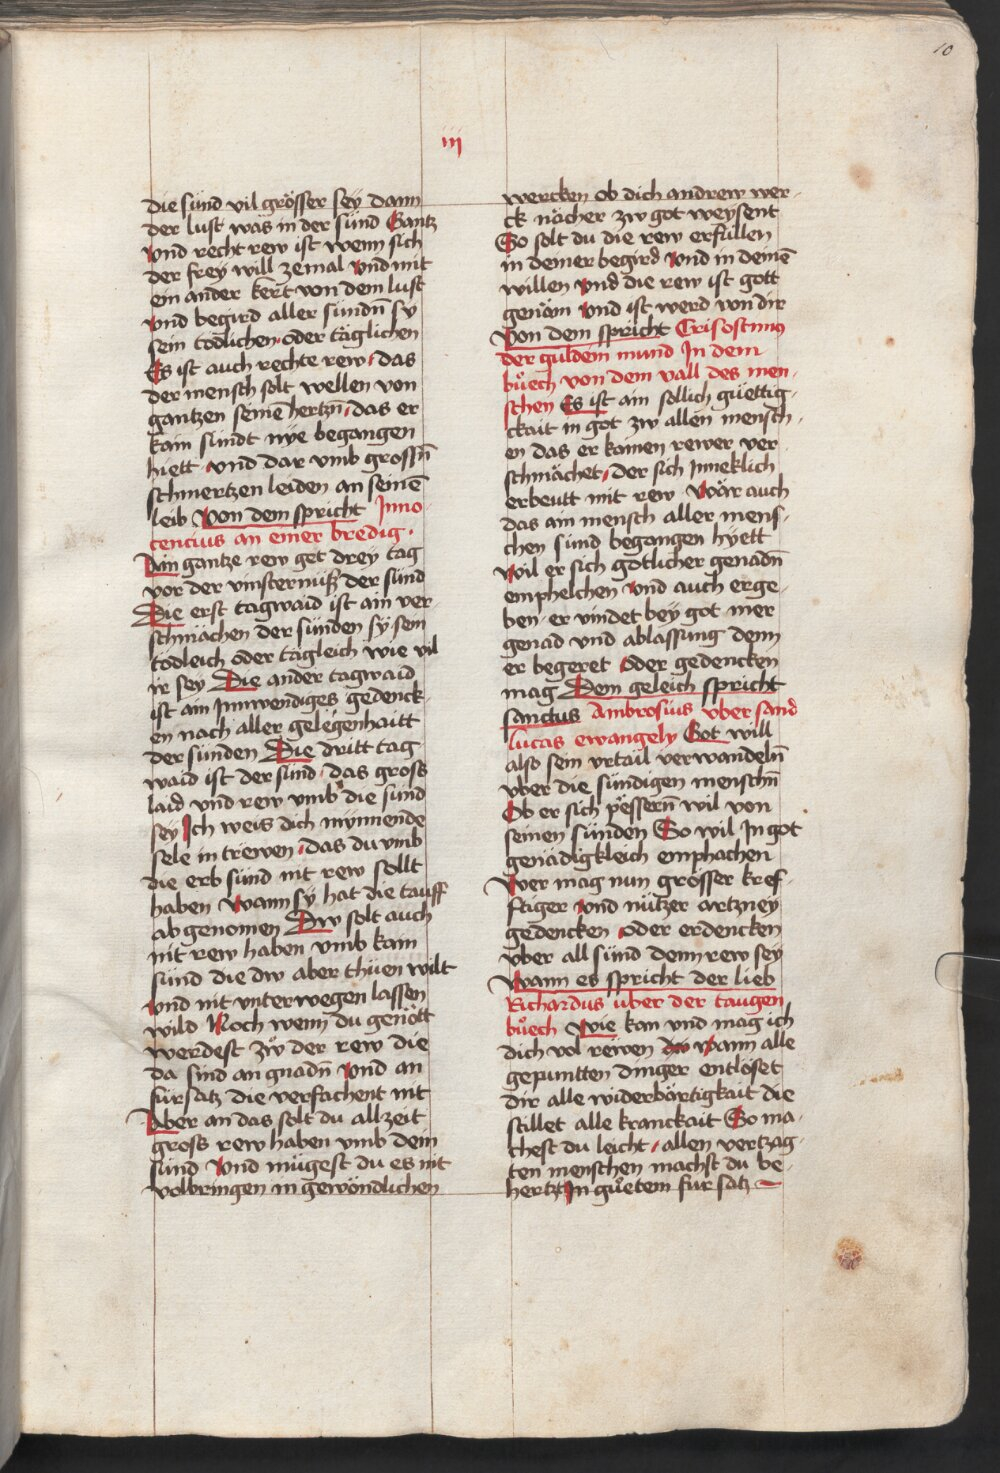 10
iij
die sünd vil grösser sey dann
der lust was in der sünd Gantz
Vnd recht rew ist wenn sich
der frey will zemal Vnd mit
ein ander kert von dem lust
Vnd begird aller sündn̄ sy
sein todlichen oder täglichen
Es ist auch rechte rew das
der mensch solt wellen von
gantzen seinē hertzn̄ das er
kain sündt nye begangen
hiett vnd dar vmb grossn̄
schmertzen leiden an seinē
leib Von dem spricht Inno
cencius an einer bredig
Ain gantze rew get drey tag
vor der vinsternüß der sünd
Die erst tagwaid ist ain ver
schmächen der sünden sy sein
tödleich oder tägleich wie vil
ir sey Die ander tagwaid
ist ain Innwendiges gedenck
en nach aller gelegenhaitt
der sünden Die dritt tag
waid ist der sünd das gross
laid vnd rew vmb die sünd
sey Ich weis dich mynnende
sele in triewen das du vmb
die erb sünd nit rew sollt
haben Wann sy hat die tauff
ab genomen Dw solt auch
nit rew haben vmb kain
sünd die dw aber thüen wilt
Vnd nit vnterwegen lassen
wild Noch wenn du genött
werdest zw der rew die
da sind an gnadn̄ Vnd an
fürsatz die verfachent nit
Aber an das solt du allzeit
gross rew haben vmb dein
sünd Vnd mügest du es nit
volbringen in gewöndlichen
wercken ob dich andrew wer
ck nächer zw got weysent
So solt du die rew erfüllen
in deiner begird Vnd in deinē
willen Vnd die rew ist gott
genäm Vnd ist werd von dir
Von dem spricht Crisostimus
der guldein mund In dem
büech von dem vall des men
schen Es ist ain sollich güettig
ckait in got zw allen mensch
en das er kainen rewer ver
schmächet der sich Inneklich
erbeutt mit rew Wär auch
das ain mensch aller mens
chen sünd begangen hyett
Wil er sich gotlicher genadn̄
emphelchen Vnd auch erge
ben er vindet bey got mer
genad vnd ablassung denn
er begeret oder gedencken
mag Dem geleich spricht
sanctus Ambrosius vber sand
lucas ewangely Got will
also sein vrtail verwandeln̄
vber die sündigen menschn̄
Ob er sich pessern̄ wil von
seinen sünden So wil In got
genädigkleich emphachen
Wer mag nun grösser kref
ftiger Vnd nützer artzney
gedencken oder erdencken
vber all sünd denn rew sey
Wann es spricht der lieb
Richardus über der taugen
büech Wie kan vnd mag ich
dich vol rewen dw Wann alle
gepuntten dinger entlöset
dir alle widerbärtigkait die
stillet alle kranckait So ma
chest du leicht allen vertzag
ten menschen machst du be
hertzt In güetem für satz